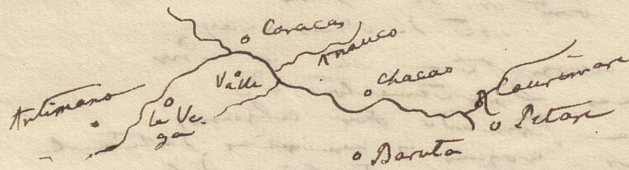 Caracas
Anauco
Valle
Chacao
Antimano
la Ve-
ga
Petare
Baruta